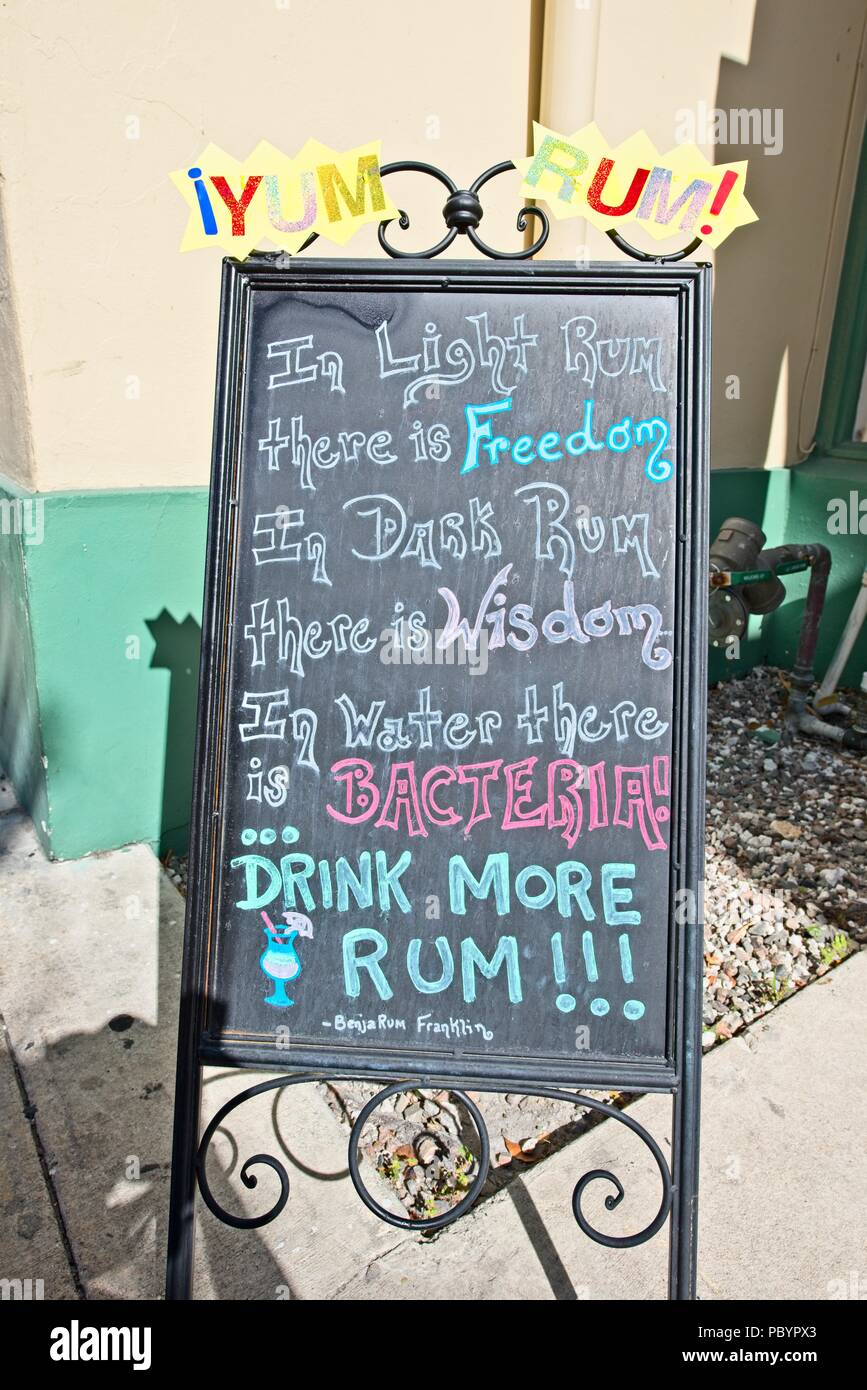 ¡YUM RUM!
In Light Rum
there is Freedom
In Dark Rum
there is Wisdom
In Water there
is BACTERIA!
...DRINK MORE
RUM!!!
-BenjaRUM Franklin
alamy
alamy
Image ID: PBYPX3
www.alamy.com